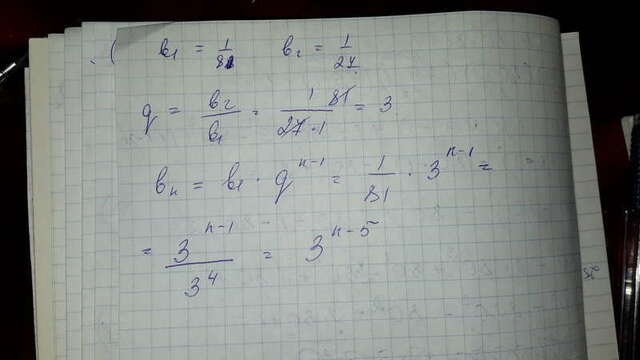 в₁ = 1/81 в₂ = 1/27
q = в₂/в₁ = 1 · 81/27 · 1 = 3
вₙ = в₁ · qⁿ⁻¹ = 1/81 · 3ⁿ⁻¹ =
= 3ⁿ⁻¹/3⁴ = 3ⁿ⁻⁵